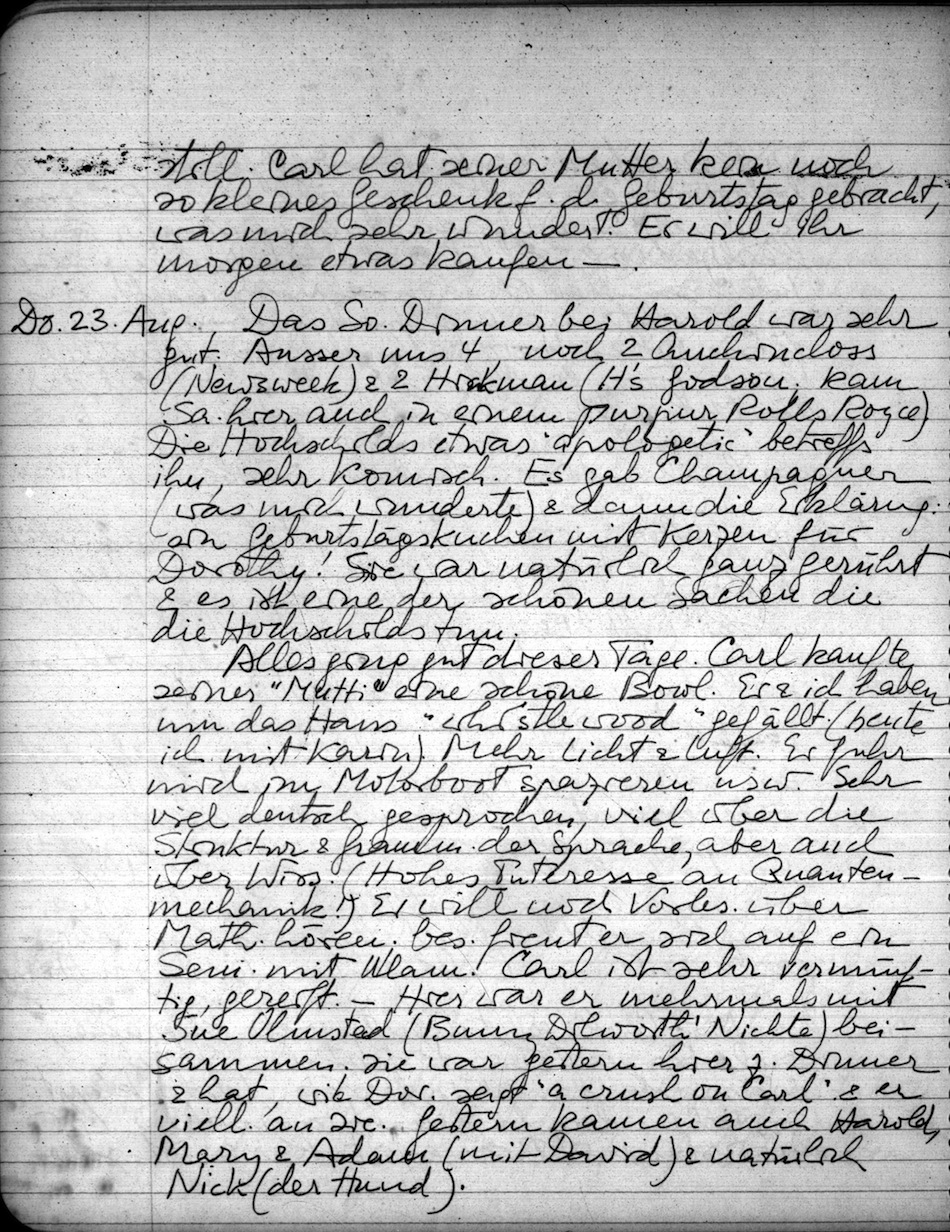 still. Carl hat seiner Mutter kein noch
so kleines Geschenk f. d. Geburtstag gebracht,
was mich sehr wundert. Er will ihr
morgen etwas kaufen —.
Do. 23. Aug., Das So. Dinner bei Harold war sehr
gut. Ausser uns 4, noch 2 Auchincloss
(Newsweek) & 2 Hickman (H's godson, kam
Sa. hier auch in einem purpur Rolls Royce)
Die Hochschilds etwas 'apologetic' betreffs
ihn, sehr komisch. Es gab Champagner
(was mich wunderte) & dann die Erklärung:
ein Geburtstagskuchen mit Kerzen für
Dorothy! Sie war natürlich ganz gerührt
& es ist eine der schönen Sachen die
die Hochschilds tun.
Alles ging gut dieser Tage. Carl kaufte
seiner "Mutti" eine schöne Bowl. Er & ich haben
um das Haus "whistlewood" gefällt (heute
ich mit Karin). Mehr Licht & Luft. Er fuhr
mich im Motorboot spazieren usw. Sehr
viel deutsch gesprochen, viel über die
Struktur & Gramm. der Sprache, aber auch
über Wiss. (Hohes Interesse an Quanten-
mechanik!) Er will noch Vorles. über
Math. hören. bes. freut er sich auf ein
Semi. mit Ulam! Carl ist sehr vernünf-
tig, gereift. — Hier war er mehrmals mit
Sue Olmsted (Bunny Dilworth' Nichte) bei-
sammen. sie war gestern hier z. Dinner
& hat, wie Dor. sagt 'a crush on Carl' & er
viell. an sie. Gestern kamen auch Harold,
Mary & Adam (mit David) & natürlich
Nick (der Hund).